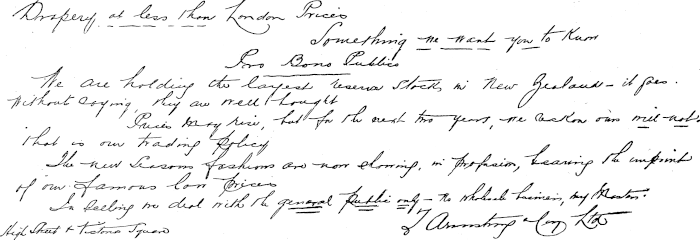 Drapery at less than London Prices
Something we want you to Know
Pro Bono Publico
We are holding the largest reserve stocks in New Zealand - it goes
without saying, they are well bought
Prices may rise, but for the next two years, we reckon ours will not,
that is our trading policy
The new Seasons fashions are now showing, in profusion, bearing the imprint
of our famous low prices
In selling we deal with the general public only - no wholesale business, my Masters.
T Armstrong & Coy Ltd
High Street & Victoria Square